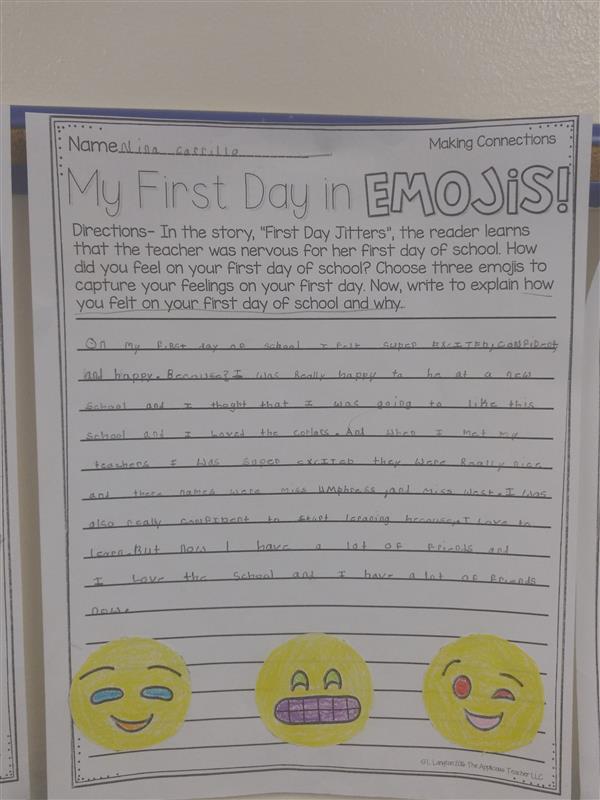 Name Nina Carrillo
Making Connections
My First Day in EMOJiS!
Directions- In the story, "First Day Jitters", the reader learns
that the teacher was nervous for her first day of school. How
did you feel on your first day of school? Choose three emojis to
capture your feelings on your first day. Now, write to explain how
you felt on your first day of school and why.
On my first day of school I felt super EXCITED, CONFIDENT,
and happy. Because? I was Really happy to be at a new
school and I thoght that I was going to like this
school and I Loved the colors. And when I met my
teachers I was super EXCITED they were Really nice
and there names were miss UMPhress, and miss west. I was
also really CONFIDENT to start learning because, I Love to
learn. But now I have a lot of friends and
I Love the school and I have a lot of friends
now.
©L Langton 2016 The Applicious Teacher LLC